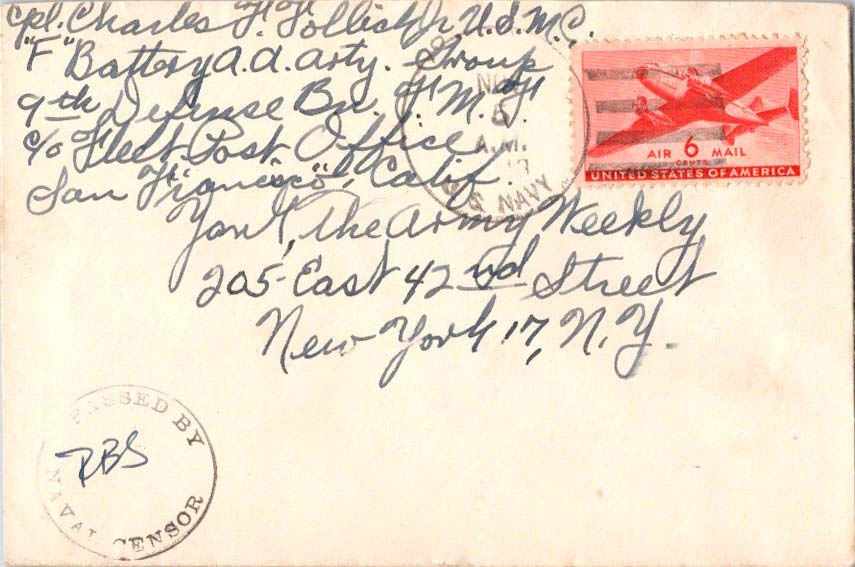 Cpl. Charles F. Follisk Jr U.S.M.C.
"F" Battery A.A. Arty. Group
9th Defense Bn. F.M.F
c/o Fleet Post Office
San Francisco, Calif.
Yank, The Army Weekly
205-East 42nd Street
New York 17, N.Y.
NOV
5
A.M.
U.S. NAVY
AIR 6 MAIL
CENTS
UNITED STATES OF AMERICA
PASSED BY
RBS
NAVAL CENSOR